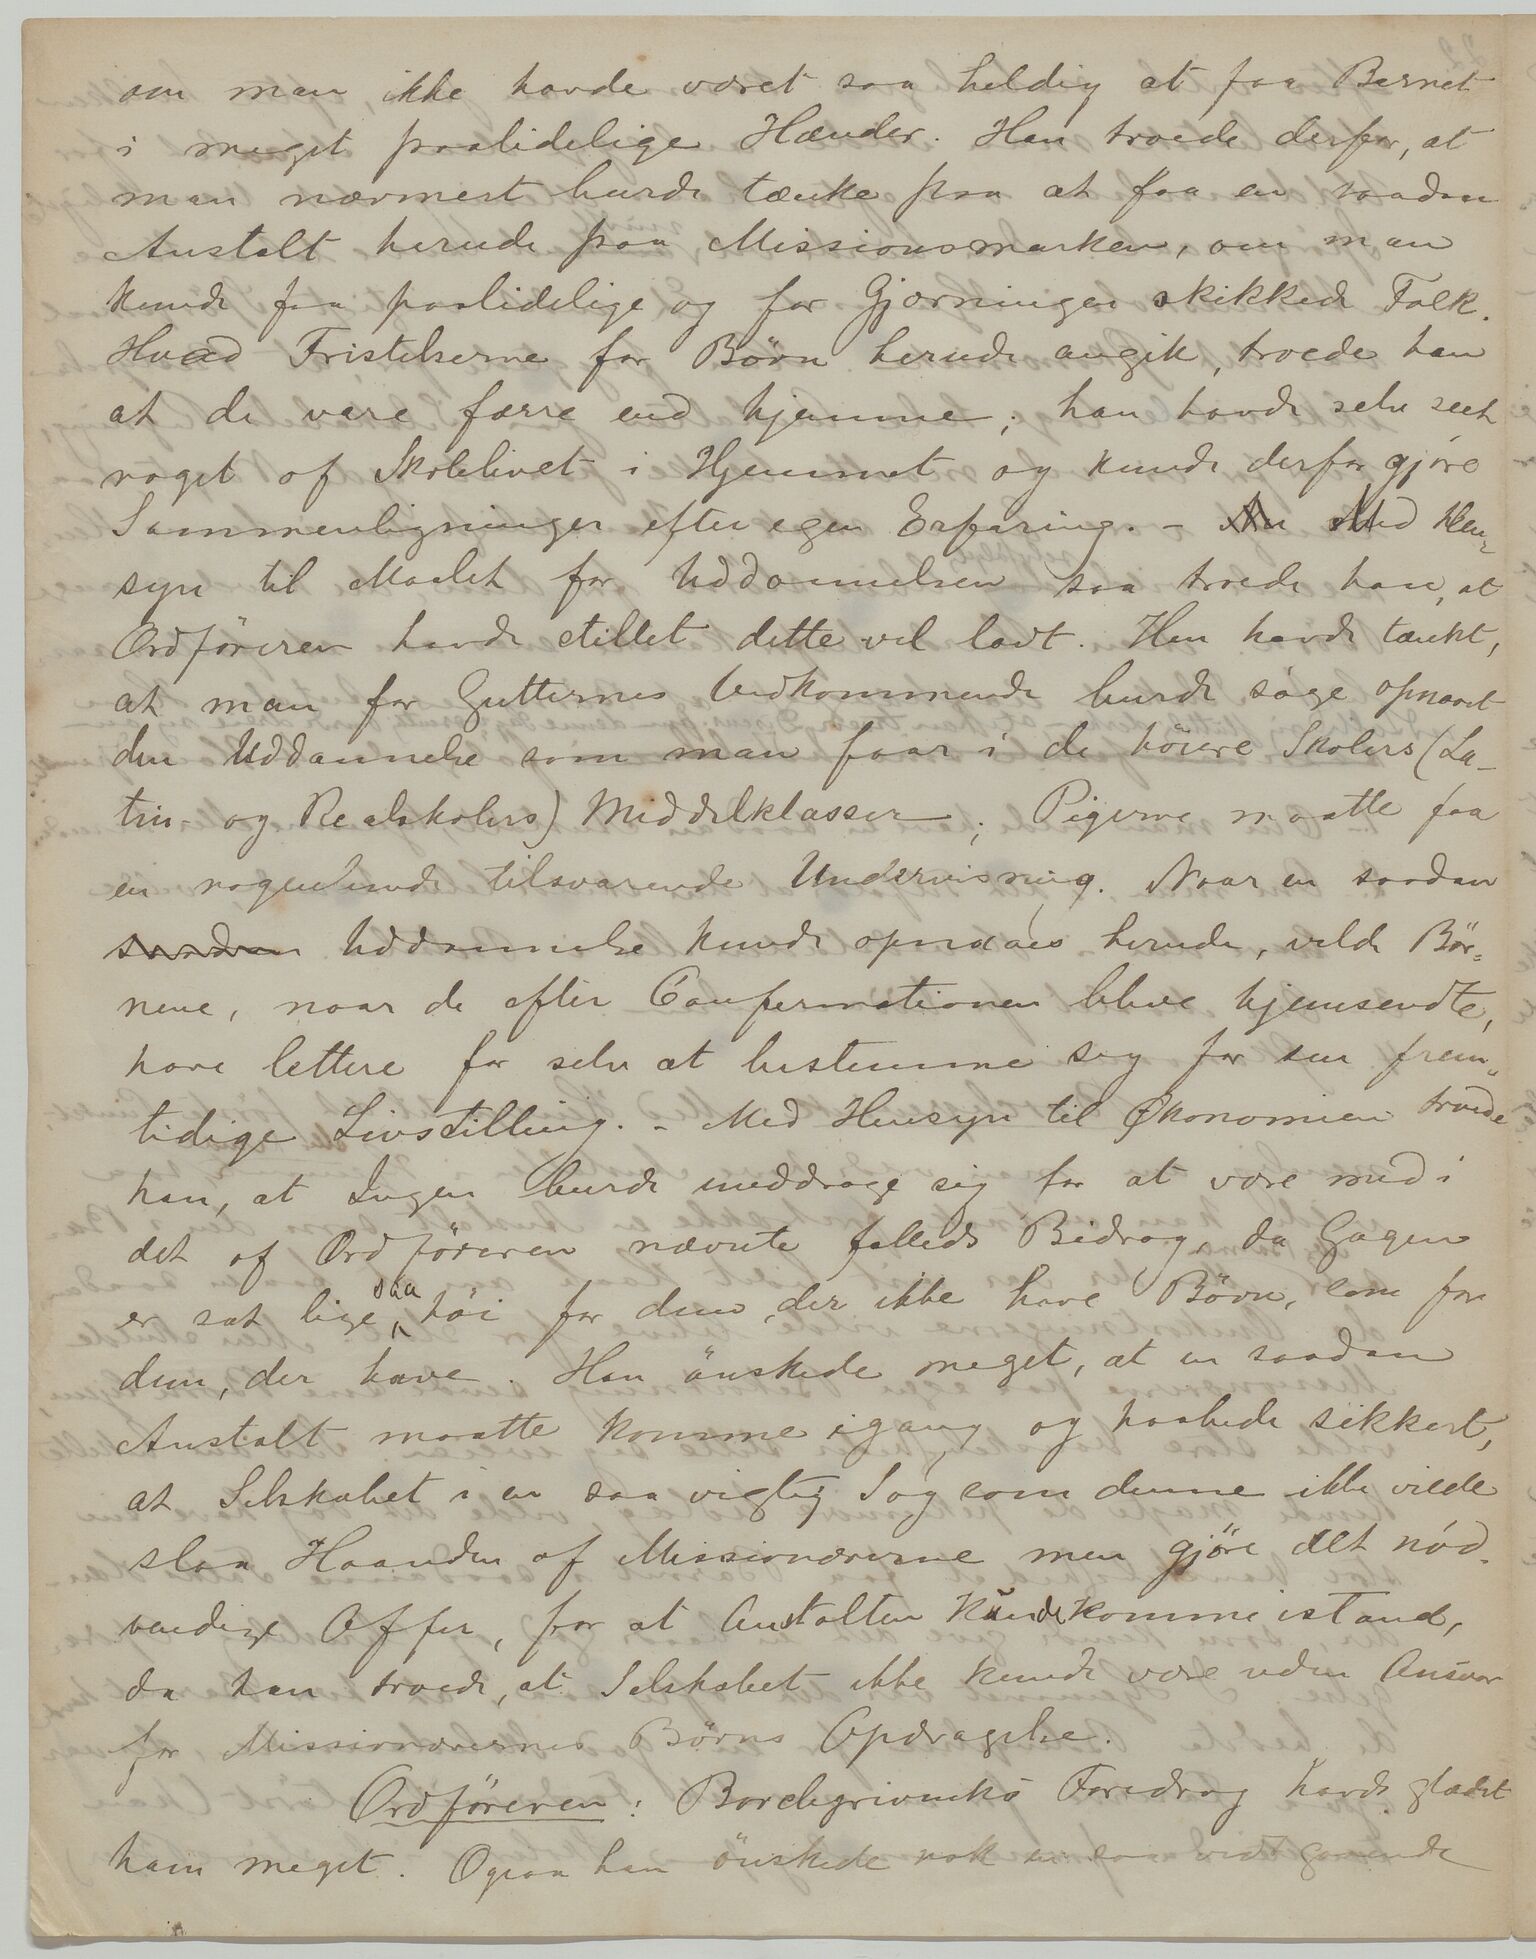 om man ikke havde været saa heldig at faa Barnet
i meget paalidelige Hænder. Han troede derfor, at
man nærmest burde tænke paa at faa en saadan
Anstalt herude paa Missionsmarken, om man
kunde faa paalidelige og for Gjærningen skikkede Folk.
Hvad Fristelserne for Börn herude angik, troede han
at de vare færre end hjemme; han havde selv seet
noget af Skolelivet i Hjemmet og kunde derfor gjöre
Sammenligninger efter egen Erfaring. - Med Hen-
syn til Maalet for Uddannelsen saa troede han, at
Ordföreren havde stillet dette vel lavt. Han havde tænkt,
at man for Gutternes Vedkommende burde söge opnaaet
den Uddannelse som man faar i de höiere Skolers (La-
tin- og Realskolers) Middelklasser; Pigerne maatte faa
en nogenlunde tilsvarende Undervisning. Naar en saadan
saadan Uddannelse kunde opnaaes herude, vilde Bör-
nene, naar de efter Confirmationen bleve hjemsendte,
have lettere for selv at bestemme sig for sin frem-
tidige Livsstilling. - Med Hensyn til Økonomien troede
han, at Ingen burde unddrage sig for at være med i
det af Ordföreren nævnte fælleds Bidrag, da Gagen
er sat lige saa höi for dem, der ikke have Börn, som for
dem, der have. Han önskede meget, at en saadan
Anstalt maatte komme igang og haabede sikkert,
at Selskabet i en saa vigtig Sag som denne ikke vilde
slaa Haanden af Missionærerne men gjöre det nöd-
vendige Offer, for at Anstalten kunde komme istand,
da han troede, at Selskabet ikke kunde være uden Ansvar
for Missionærernes Börns Opdragelse.
Ordföreren: Borchgrevinks Foredrag havde glædet
ham meget. Ogsaa han önskede nok en saa vidtgaaende